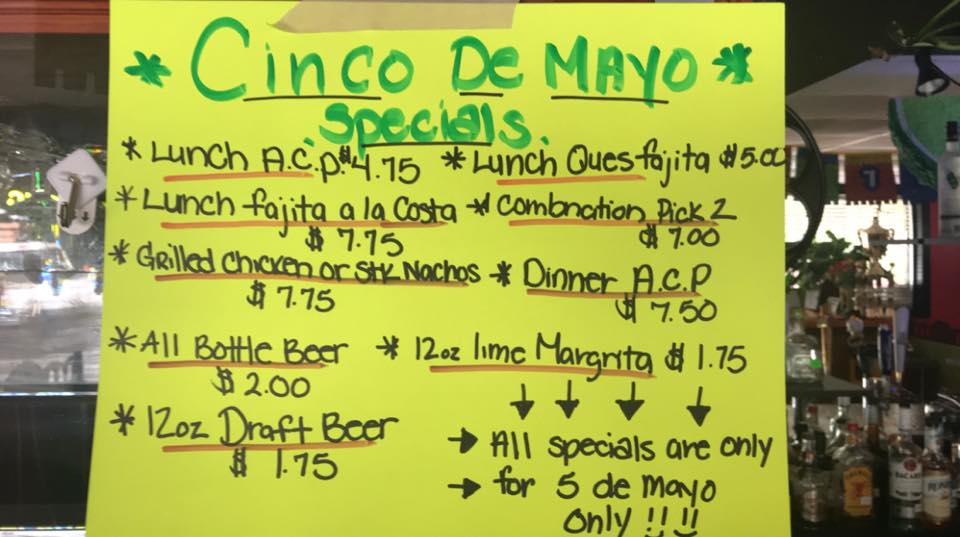 * Cinco De Mayo *
Specials.
* Lunch A.C.P. $4.75
* Lunch Ques fajita $5.00
* Lunch fajita a la Costa
$ 7.75
* Combnation Pick 2
$ 7.00
* Grilled chicken or Stk Nachos
$ 7.75
* Dinner A.C.P
$ 7.50
* All Bottle Beer
$ 2.00
* 12oz lime Margrita $ 1.75
* 12oz Draft Beer
$ 1.75
→ All specials are only
→ for 5 de mayo
only !! !!
7
BACARDI